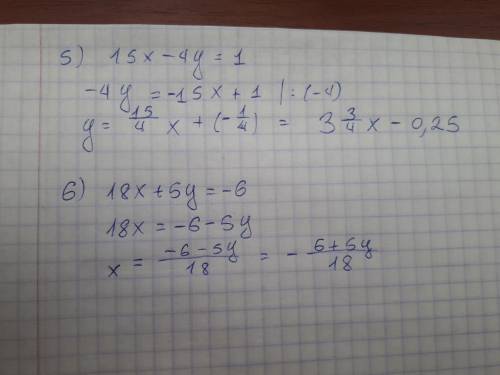 5) 15x - 4y = 1
-4y = -15x + 1 | : (-4)
y = 15/4 x + (-1/4) = 3 3/4 x - 0,25
6) 18x + 5y = -6
18x = -6 - 5y
x = -6 - 5y / 18 = - 6 + 5y / 18